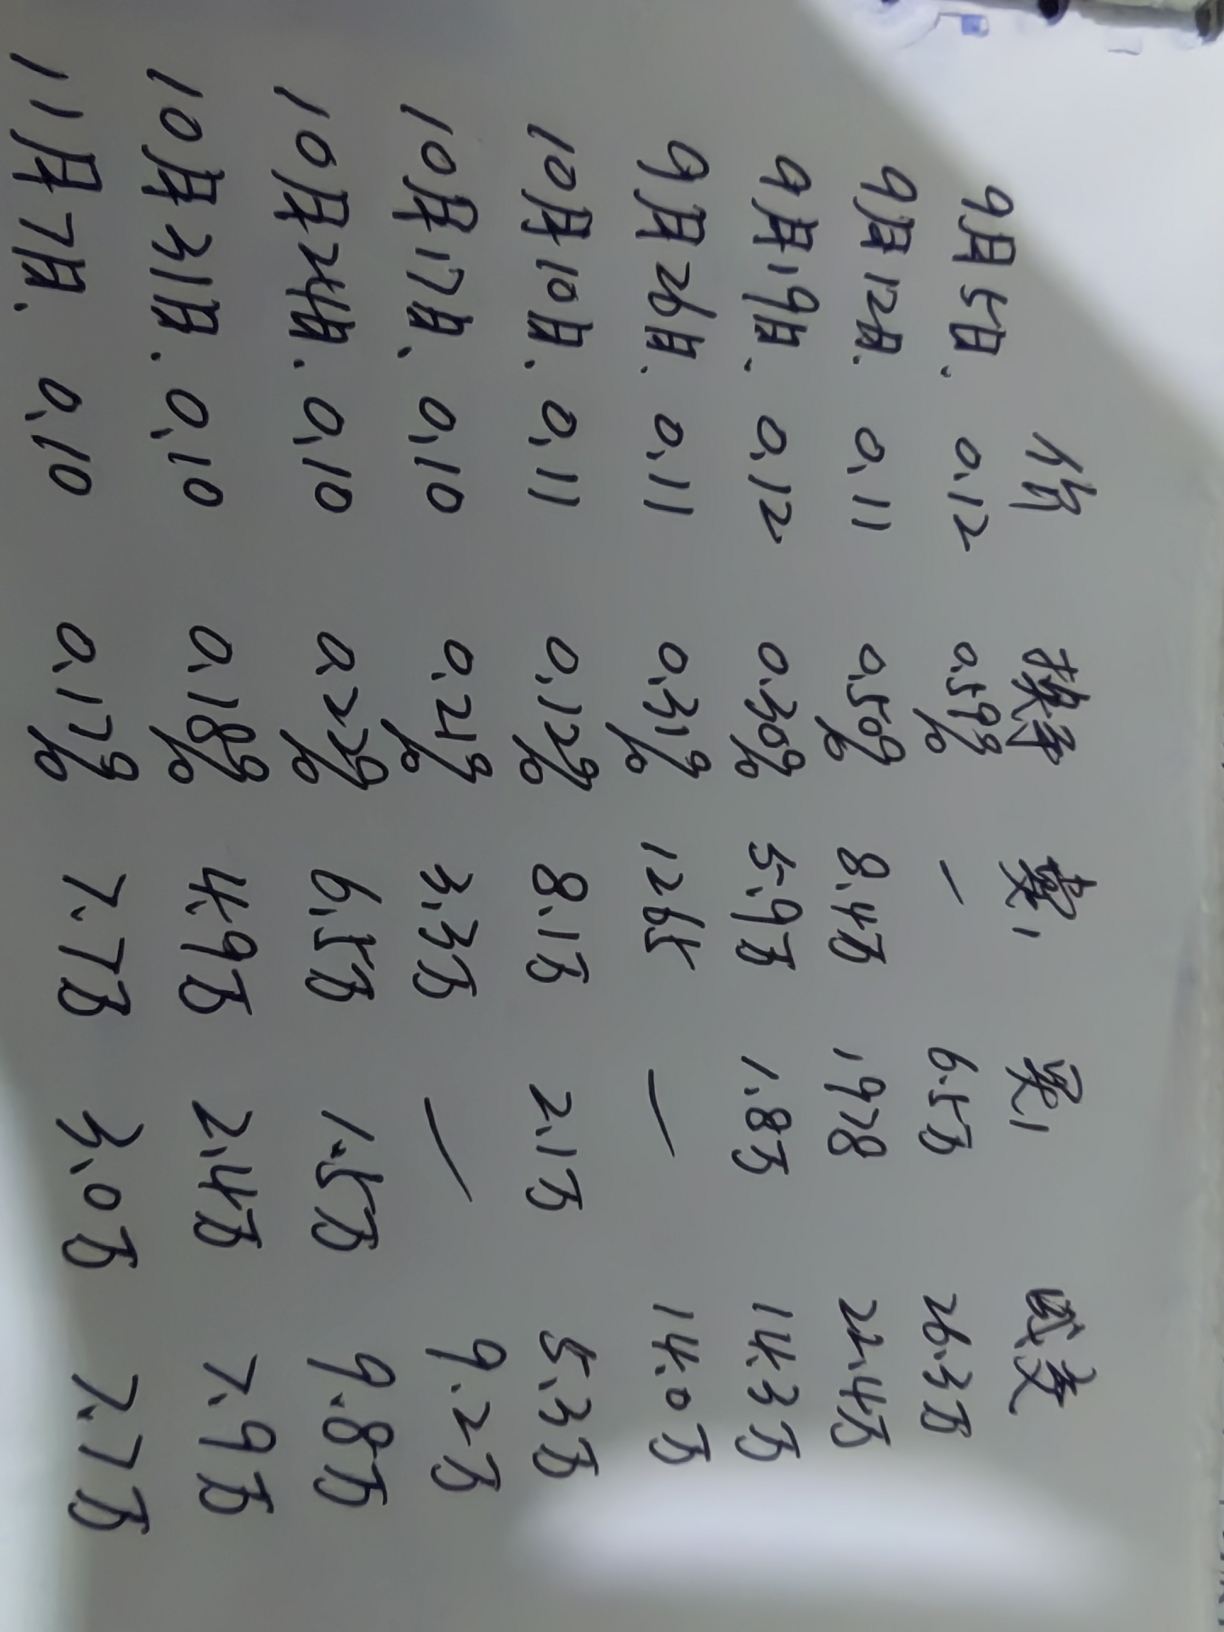 价 换手 卖1 买1 成交
9月5日、 0.12 0.59% — 6.5万 26.3万
9月12日、 0.11 0.50% 8.4万 1978 22.4万
9月19日、 0.12 0.30% 5.9万 1.8万 14.3万
9月26日、 0.11 0.31% 1265 — 14.0万
10月10日、 0.11 0.12% 8.1万 2.1万 5.3万
10月17日、 0.10 0.21% 3.3万 — 9.2万
10月24日、 0.10 0.22% 6.5万 1.5万 9.8万
10月31日、 0.10 0.18% 4.9万 2.4万 7.9万
11月7日、 0.10 0.17% 7.7万 3.0万 7.7万